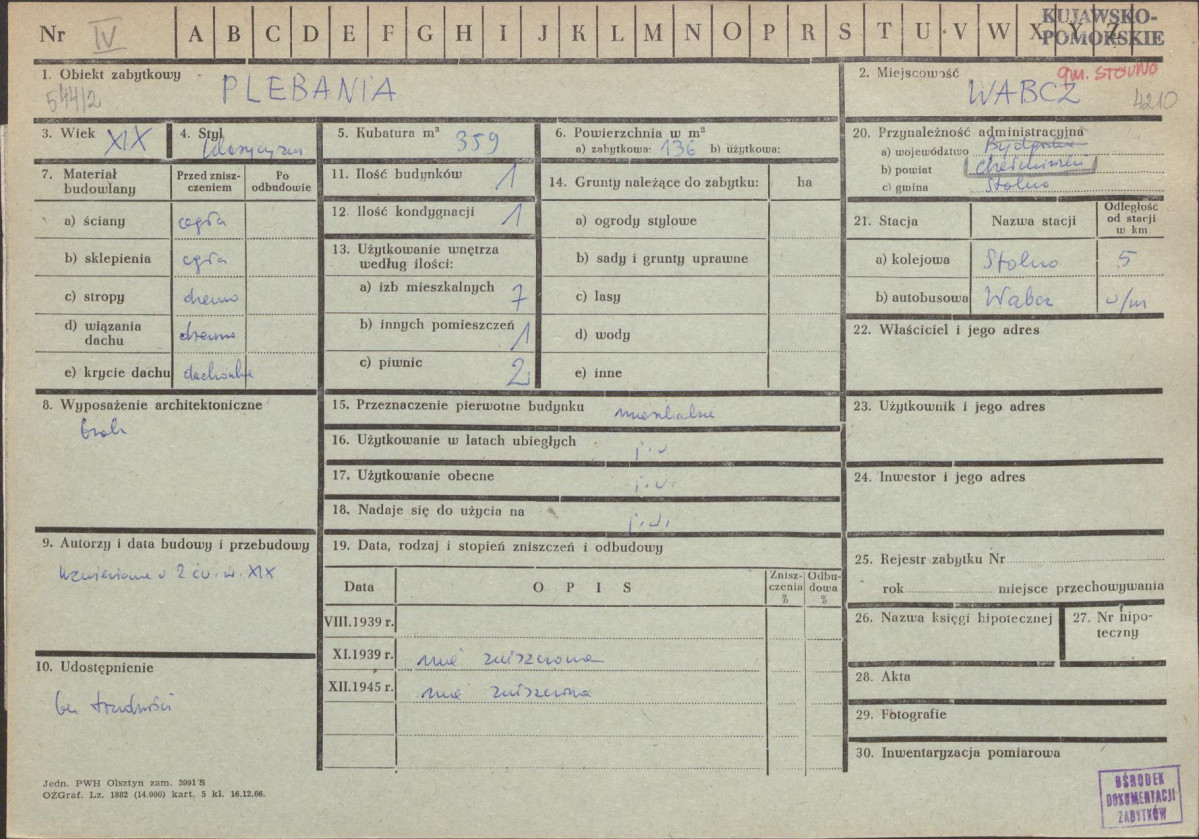 Nr IV A B C D E F G H I J K L M N O P R S T U V W X Y Z
KUJAWSKO-
POMORSKIE
1. Obiekt zabytkowy
544/2
PLEBANIA
2. Miejscowość
gm. STOLNO
WABCZ
4210
3. Wiek XIX
4. Styl
klasycyzm
5. Kubatura m³ 359
6. Powierzchnia w m²
a) zabytkowa: 136 b) użytkowa:
7. Materiał budowlany
Przed zniszczeniem
Po odbudowie
a) ściany cegła
b) sklepienia cegła
c) stropy drewno
d) wiązania dachu drewno
e) krycie dachu dachówka
8. Wyposażenie architektoniczne
brak
9. Autorzy i data budowy i przebudowy
Wzniesiona w 2 ćw. w. XIX
10. Udostępnienie
bez trudności
11. Ilość budynków 1
12. Ilość kondygnacji 1
13. Użytkowanie wnętrza
według ilości:
a) izb mieszkalnych 7
b) innych pomieszczeń 1
c) piwnic 2
14. Grunty należące do zabytku: ha
a) ogrody stylowe
b) sady i grunty uprawne
c) lasy
d) wody
e) inne
15. Przeznaczenie pierwotne budynku mieszkalne
16. Użytkowanie w latach ubiegłych j.w.
17. Użytkowanie obecne j.w.
18. Nadaje się do użycia na j.w.
19. Data, rodzaj i stopień zniszczeń i odbudowy
Data O P I S Zniszczenia % Odbudowa %
VIII.1939 r.
XI.1939 r. nie zniszczona
XII.1945 r. nie zniszczona
20. Przynależność administracyjna
a) województwo
b) powiat chełmiński
c) gmina Stolno
21. Stacja Nazwa stacji Odległość od stacji w km
a) kolejowa Stolno 5
b) autobusowa Wabcz w/m
22. Właściciel i jego adres
23. Użytkownik i jego adres
24. Inwestor i jego adres
25. Rejestr zabytku Nr
rok miejsce przechowywania
26. Nazwa księgi hipotecznej
27. Nr hipoteczny
28. Akta
29. Fotografie
30. Inwentaryzacja pomiarowa
Jedn. PWH Olsztyn zam. 3991 S
OZGraf. Lz. 1882 (14.000) kart. 5 kl. 16.12.66.
OŚRODEK
DOKUMENTACJI
ZABYTKÓW